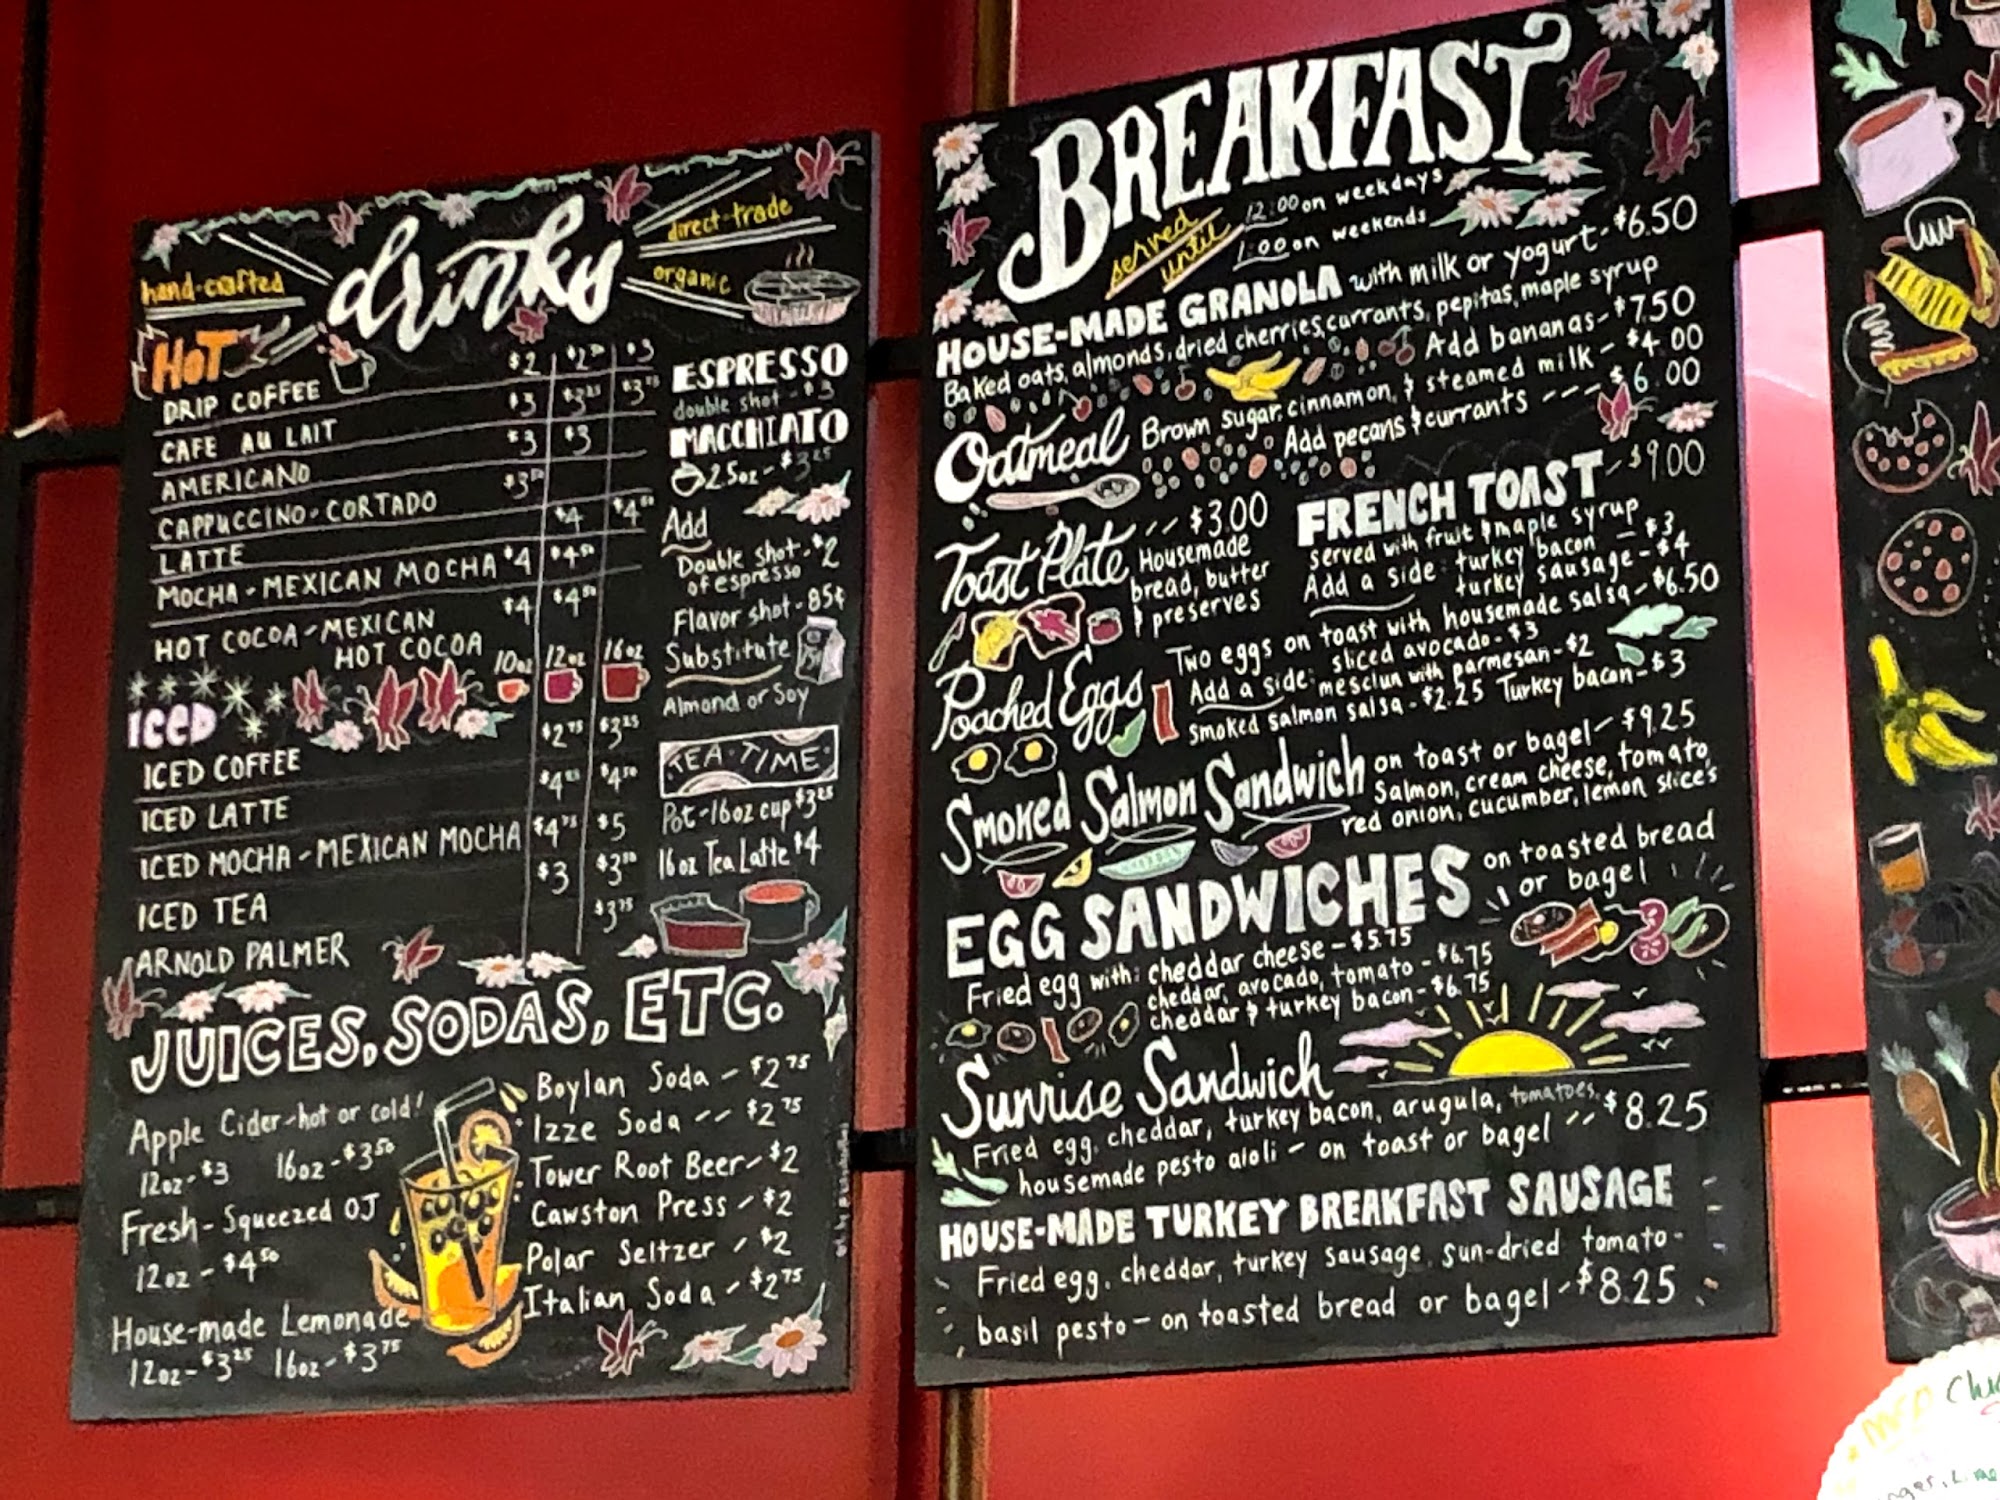 drinks
hand-crafted
direct-trade
organic
HOT
DRIP COFFEE $2 $2⁵⁰ $3
CAFE AU LAIT $3 $3²⁵ $3⁷⁵
AMERICANO $3 $3
CAPPUCCINO-CORTADO $3⁵⁰
LATTE $4 $4⁵⁰
MOCHA-MEXICAN MOCHA $4 $4⁵⁰
HOT COCOA-MEXICAN $4 $4⁵⁰
HOT COCOA
10oz 12oz 16oz
ICED
ICED COFFEE $2⁷⁵ $3²⁵
ICED LATTE $4²⁵ $4⁵⁰
ICED MOCHA-MEXICAN MOCHA $4⁷⁵ $5
ICED TEA $3 $3⁵⁰
ARNOLD PALMER $3⁷⁵
ESPRESSO
double shot - $3
MACCHIATO
2.5oz - $3²⁵
Add
Double shot - $2
of espresso
Flavor shot - 85¢
Substitute
Almond or Soy
TEA·TIME
Pot-16oz cup $3²⁵
16oz Tea Latte $4
JUICES, SODAS, ETC.
Apple Cider-hot or cold!
12oz - $3 16oz - $3⁵⁰
Fresh-Squeezed OJ
12oz - $4⁵⁰
House-made Lemonade
12oz - $3²⁵ 16oz - $3⁷⁵
Boylan Soda - $2⁷⁵
Izze Soda -- $2⁷⁵
Tower Root Beer - $2
Cawston Press - $2
Polar Seltzer - $2
Italian Soda - $2⁷⁵
BREAKFAST
served until
12:00 on weekdays
1:00 on weekends
HOUSE-MADE GRANOLA with milk or yogurt - $6.50
Baked oats, almonds, dried cherries, currants, pepitas, maple syrup
Add bananas - $7.50
Oatmeal Brown sugar, cinnamon, & steamed milk - $4.00
Add pecans & currants --- $6.00
Toast Plate -- $3.00
Housemade
bread, butter
& preserves
FRENCH TOAST - $9.00
served with fruit & maple syrup
Add a side: turkey bacon - $3
turkey sausage - $4
Poached Eggs
Two eggs on toast with housemade salsa - $6.50
Add a side: sliced avocado - $3
mesclun with parmesan - $2
smoked salmon salsa - $2.25 Turkey bacon - $3
Smoked Salmon Sandwich on toast or bagel - $9.25
Salmon, cream cheese, tomato,
red onion, cucumber, lemon slice's
EGG SANDWICHES on toasted bread
or bagel
Fried egg with: cheddar cheese - $5.75
cheddar, avocado, tomato - $6.75
cheddar & turkey bacon - $6.75
Sunrise Sandwich
Fried egg, cheddar, turkey bacon, arugula, tomatoes,
housemade pesto aioli - on toast or bagel -- $8.25
HOUSE-MADE TURKEY BREAKFAST SAUSAGE
Fried egg, cheddar, turkey sausage, sun-dried tomato-
basil pesto - on toasted bread or bagel - $8.25